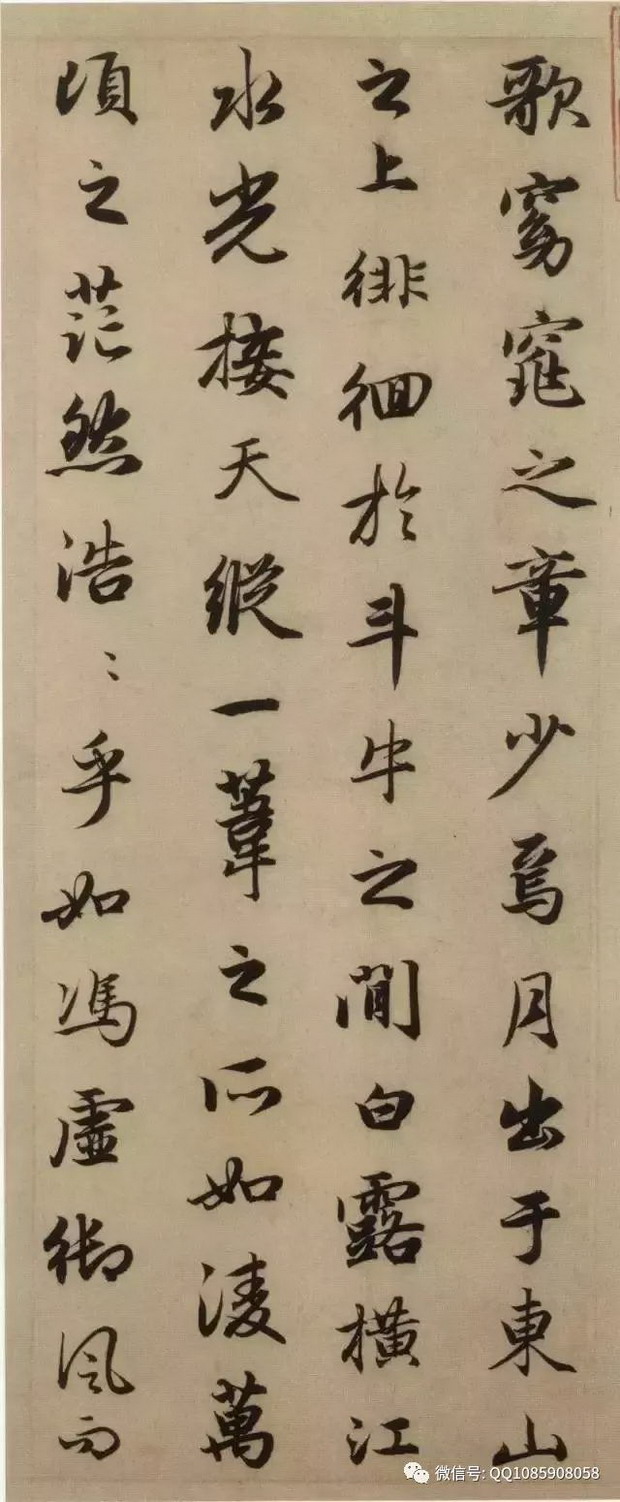 歌窈窕之章少焉月出于東山
之上徘徊於斗牛之間白露橫江
水光接天縱一葦之所如淩萬
頃之茫然浩〻乎如馮虛御風而
微信号: QQ1085908058